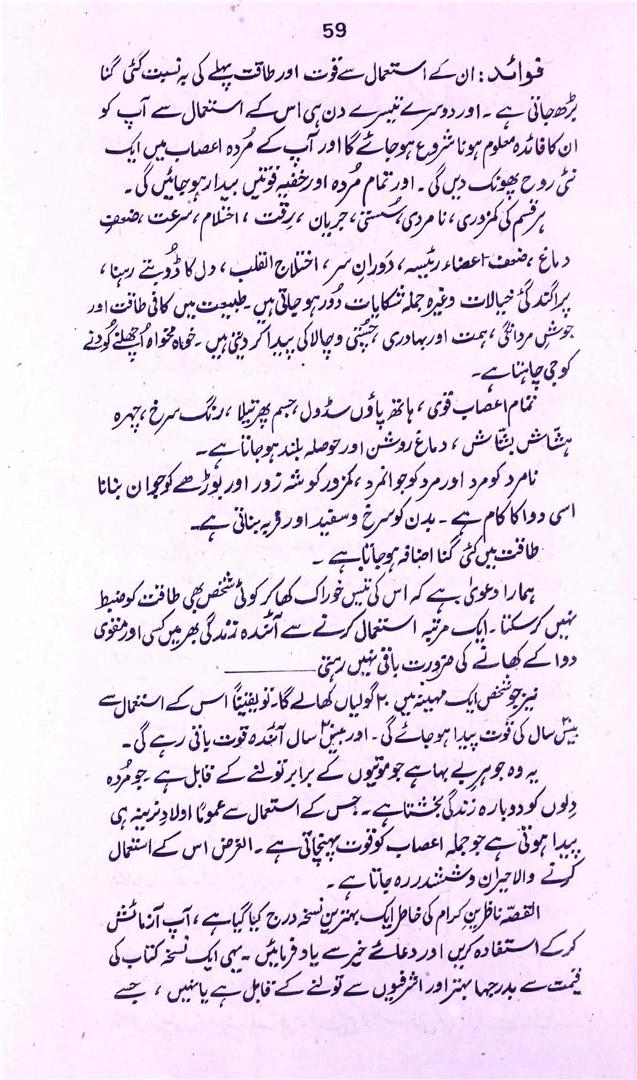 59
فوائد: ان کے استعمال سے قوت اور طاقت پہلے کی بہ نسبت کئی گنا
بڑھ جاتی ہے۔ اور دوسرے تیسرے دن ہی اس کے استعمال سے آپ کو
ان کا فائدہ معلوم ہونا شروع ہو جائے گا اور آپ کے مُردہ اعصاب میں ایک
نئی روح پھونک دیں گی۔ اور تمام مُردہ اور خفیہ قوتیں بیدار ہو جائیں گی۔
ہر قسم کی کمزوری، نامردی، سُستی، جریان، رِقت، احتلام، سرعت، ضعفِ
دماغ، ضعف اعضاء رئیسہ، دَورانِ سر، اختلاج القلب، دل کا ڈوبتے رہنا،
پراگندگئ خیالات وغیرہ جملہ شکایات دُور ہو جاتی ہیں۔ طبیعت میں کافی طاقت اور
جوشِ مردانگی، ہمت اور بہادری، چُستی و چالاکی پیدا کر دیتی ہیں۔ خواہ مخواہ اُچھلنے کُودنے
کو جی چاہتا ہے۔
تمام اعصاب قوی، ہاتھ پاؤں سڈول، جسم پھرتیلا، رنگ سرخ، چہرہ
ہشّاش بشّاش، دماغ روشن اور حوصلہ بلند ہو جاتا ہے۔
نامرد کو مرد اور مرد کو جوانمرد، کمزور کو شہ زور اور بوڑھے کو جوان بنانا
اسی دوا کا کام ہے۔ بدن کو سرخ و سفید اور فربہ بناتی ہے۔
طاقت میں کئی گنا اضافہ ہو جاتا ہے۔
ہمارا دعویٰ ہے کہ اس کی تیس خوراک کھا کر کوئی شخص بھی طاقت کو ضبط
نہیں کر سکتا۔ ایک مرتبہ استعمال کرنے سے آئندہ زندگی بھر میں کسی اور مقوی
دوا کے کھانے کی ضرورت باقی نہیں رہتی
نیز جو شخص ایک مہینہ میں ۲۰ گولیاں کھالے گا۔ تو یقیناً اس کے استعمال سے
بیس سال کی قوت پیدا ہو جائے گی۔ اور بیس سال آئندہ قوت باقی رہے گی۔
یہ وہ جوہرِ بے بہا ہے جو موتیوں کے برابر تولنے کے قابل ہے۔ جو مُردہ
دِلوں کو دوبارہ زندگی بخشتا ہے۔ جس کے استعمال سے عموماً اولادِ نرینہ ہی
پیدا ہوتی ہے جو جملہ اعصاب کو قوت پہنچاتی ہے۔ الغرض اس کے استعمال
کرنے والا حیران و ششدر رہ جاتا ہے۔
القصّہ ناظرینِ کرام کی خاطر ایک بہترین نسخہ درج کیا گیا ہے، آپ آزمائش
کرکے استفادہ کریں اور دعائے خیر سے یاد فرمائیں۔ یہی ایک نسخہ کتاب کی
قیمت سے بدرجہا بہتر اور اشرفیوں سے تولنے کے قابل ہے یا نہیں، جسے